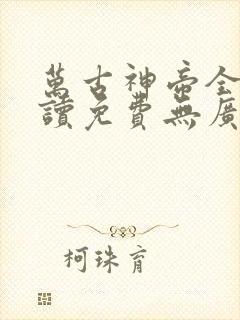 萬古神帝全
讀免費無廣
柯珠育